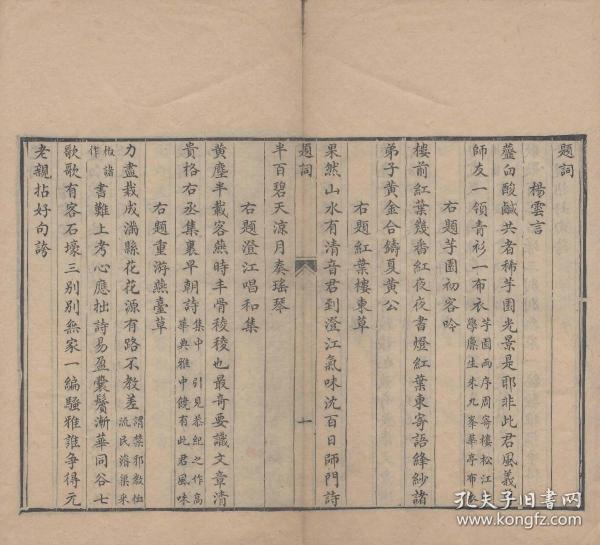 題詞
楊雲言
虀臼酸鹹共者稀芋園光景是耶非此君風義
師友一領青衫一布衣芋園兩序周寄樓松江學廉生朱九峯華亭布衣
右題芋園初客吟
樓前紅葉幾番紅夜夜書燈紅葉東寄語絳紗諸
弟子黃金合鑄夏黃公
右題紅葉樓東草
果然山水有清音君到澄江氣味沈百日師門詩
題詞
一
半百碧天涼月奏瑤琴
右題澄江唱和集
黃塵半載客燕時半骨稜稜也最奇要識文章清
貴格右丞集裏早朝詩集中引見恭紀之作高華典雅中饒有此君風味
右題重游燕臺草
力盡栽成滿縣花花源有路不教差謂禁邪教恤流民濬渠釆
作諸書難上考心應拙詩易盈囊鬢漸華同谷七
歌歌有客石壕三別別無家一編騷雅誰爭得元
老親拈好句誇
孔夫子旧书网
www.kongfz.com